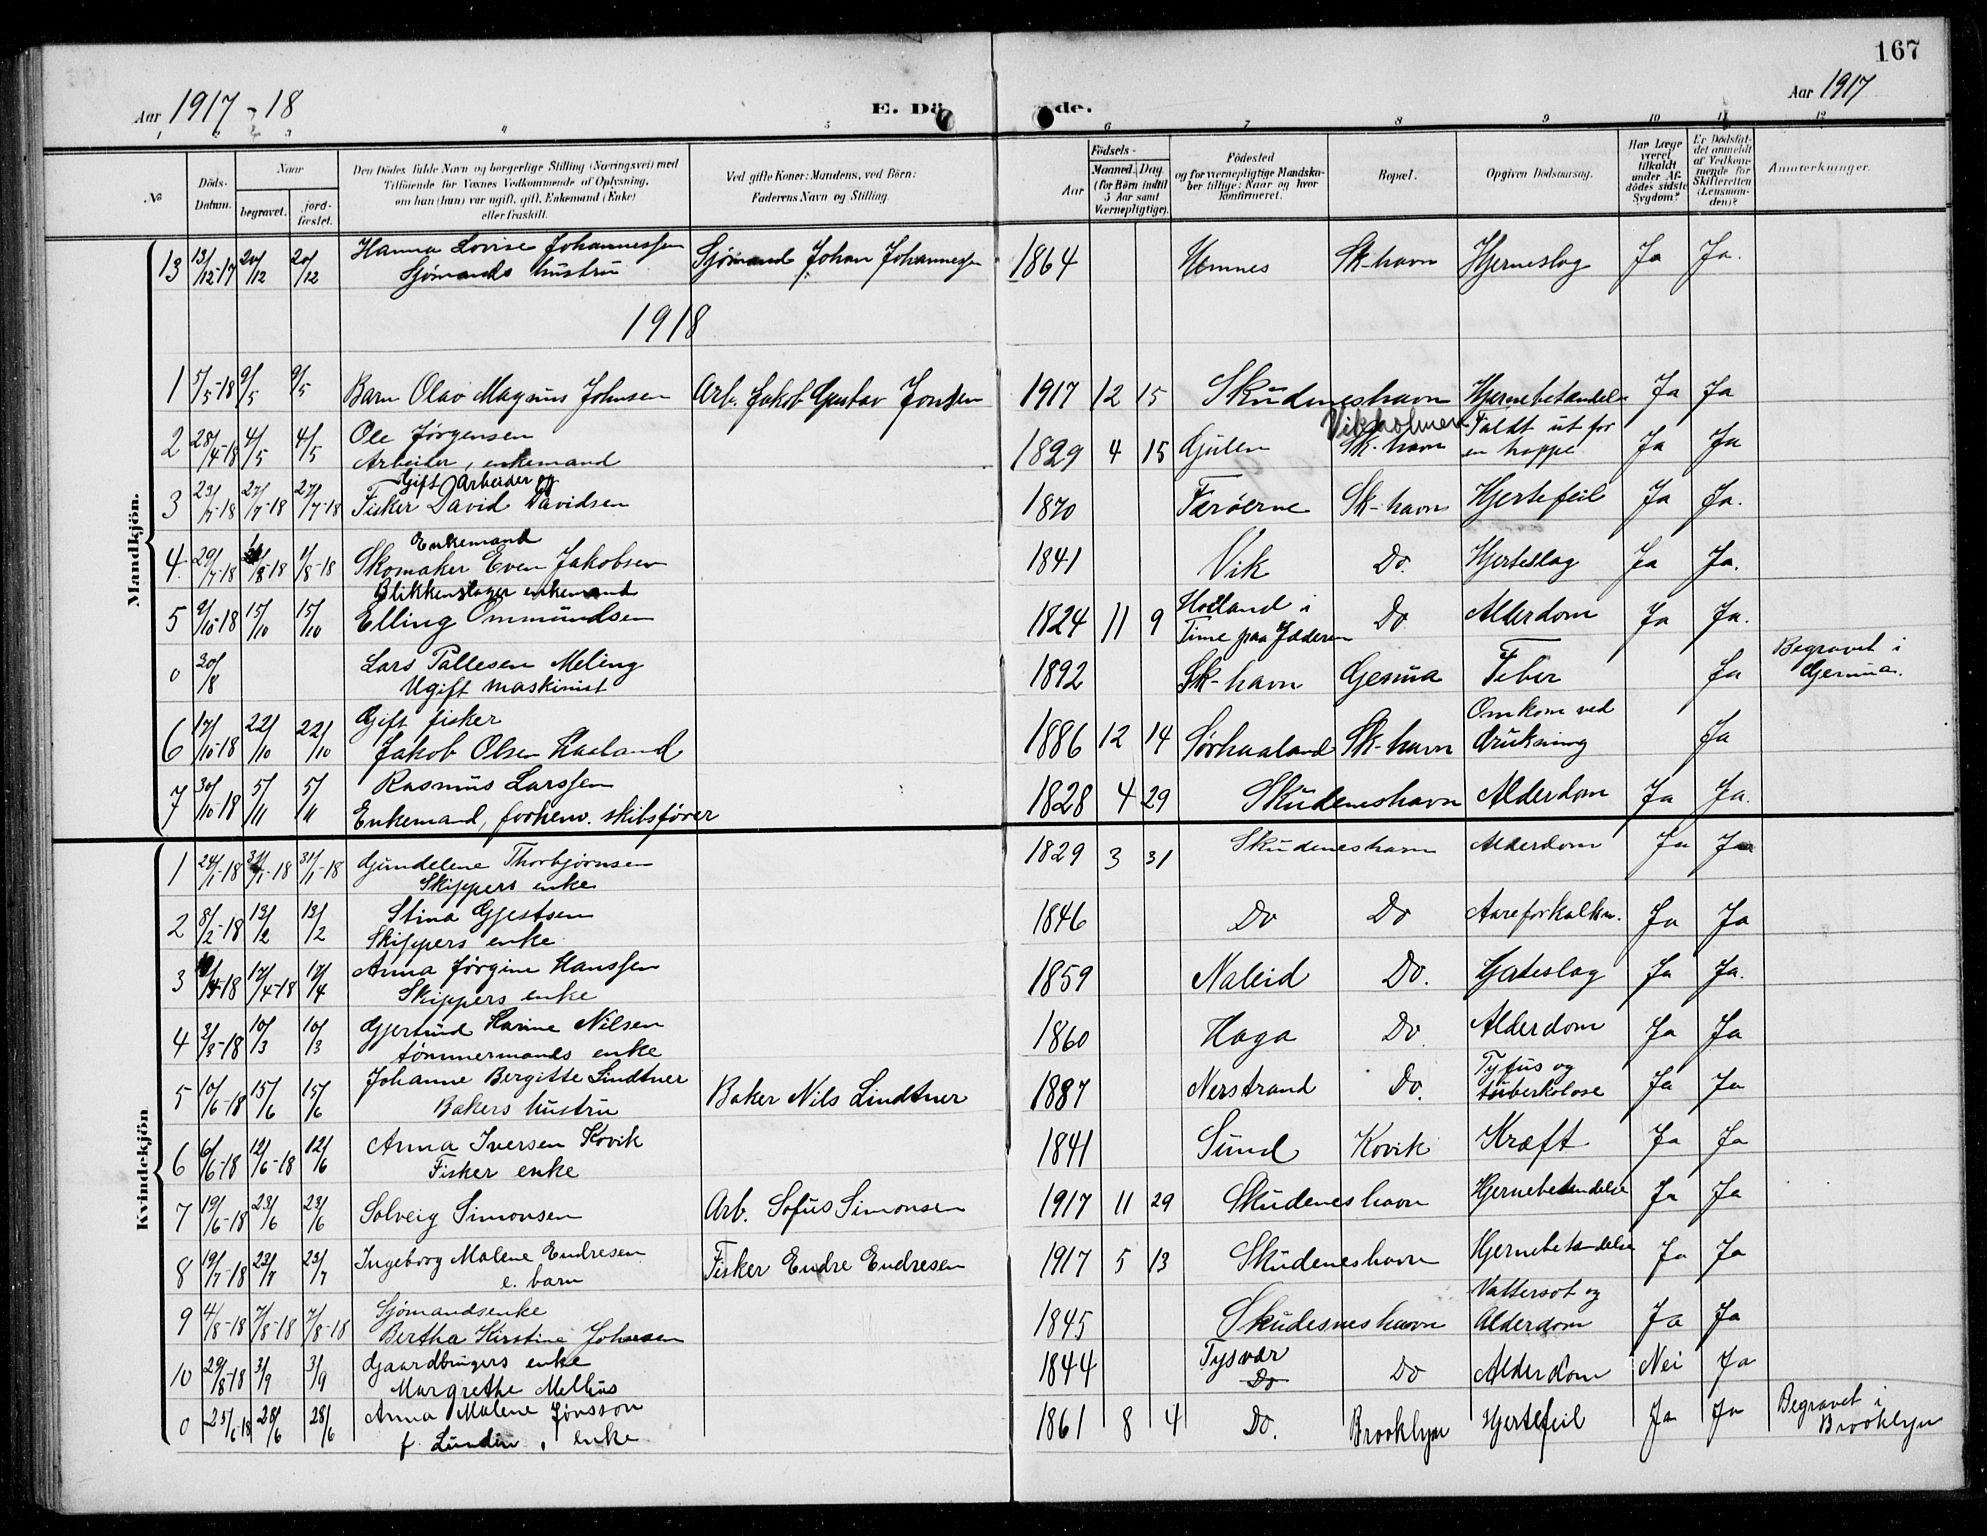 167
Aar 1917-18
E. Dö
de.
Aar 1917
1 2 3 4 5 6 7 8 9 10 11 12
№
Döds-Datum.
Naar
begravet.
jord-fæstet.
Den Dödes fulde Navn og borgerlige Stilling (Næringsvei) med
Tilföiende for Voxnes Vedkommende af Oplysning,
om han (hun) var ugift, gift, Enkemand (Enke)
eller fraskilt.
Ved gifte Koner: Mandens, ved Börn:
Faderens Navn og Stilling.
Födsels-
Aar
Maaned.
Dag.
(for Börn indtil
5 Aar samt
Værnepligtige).
Födested
og for værnepligtige Mandska-
ber tillige: Naar og hvor
konfirmeret.
Bopæl.
Opgiven Dödsaarsag.
Har Læge
været
tilkaldt
under Af-
dödes sidste
Sygdom?
Er Dödsfal-
det anmeldt
af Vedkom-
mende for
Skifteretten
(Lensman-
den)?
Anmerkninger.
Mandkjön.
13 13/12-17 20/12 20/12 Hanna Lovise Johannessen Sjömand Johan Johannessen 1864 Sk-havn Hjerneslag Ja Ja.
Sjömands hustru
1918
1 5/5-18 9/5 9/5 Barn Olav Magnus Johnsen Arb. Jakob Gustav Jonsen 1917 12 15 Skudeneshavn Hjernebetændelse Ja Ja
2 28/4-18 4/5 4/5 Ole Jørgensen 1829 4 15 Gulen Vikholmen Sk-havn Faldt ut for Ja Ja
Arbeider, enkemand en trappe
Gift Arbeider og
3 23/7-18 27/7-18 27/7-18 Fisker David Davidsen 1870 Færøerne Sk-havn Hjertefeil Ja Ja.
Enkemand
4 29/7-18 1/8-18 1/8-18 Skomaker Even Jakobsen 1841 Vik Do. Hjerteslag Ja Ja.
Blikkenslager enkemand
5 9/10-18 15/10 15/10 Elling Ommundsen 1824 11 9 Holland i Do Alderdom Ja Ja.
Time paa Jæderen
0 30/8 Lars Pallesen Meling 1892 Sk-havn Genua Feber Ja Begravet i
Ugift maskinist Genua.
6 17/10-18 22/10 22/10 Gift fisker Omkom ved
Jakob Olsen Haaland 1886 12 14 Sørhaaland Sk-havn drukning Ja
7 30/10-18 5/11 5/11 Rasmus Larssen 1828 4 29 Skudeneshavn Alderdom Ja Ja.
Enkemand, forhenv. skibsfører
Kvindekjön
1 24/1-18 31/1-18 31/1-18 Gundelene Thorbjørnsen 1829 3 31 Skudeneshavn Alderdom Ja Ja
Skippers enke
2 8/2-18 13/2 13/2 Stina Gjestsen 1846 Do Do Aareforkalkn. Ja Ja
Skippers enke
3 /4-18 17/4-18 17/4 Anna Jørgine Hanssen 1859 Naleid Do. Hjerteslag Ja Ja.
Skippers enke
4 3/3-18 10/3 10/3 Gjertrud Karine Nilsen 1860 Haga Do. Alderdom Ja Ja
tømmermands enke
5 10/6-18 15/6 15/6 Johanne Bergitte Lindtner Baker Nils Lindtner 1887 Nerstrand Do. Tyfus og Ja Ja
Bakers hustru tuberkolose
6 6/6-18 12/6-18 12/6 Anna Iversen Kovik 1841 Sund Kovik Kræft Ja Ja
Fisker enke
7 19/6-18 23/6 23/6 Solveig Simonsen Arb. Sofus Simonsen 1917 11 29 Skudeneshavn Hjernebetændelse Ja Ja
8 19/7-18 23/7 23/7 Ingeborg Malene Endresen Fisker Endre Endresen 1917 5 13 Skudeneshavn Hjernebetændelse Ja Ja
e. barn
9 4/8-18 7/8-18 7/8-18 Sjömandsenke 1845 Skudesneshavn Vattersot og Ja Ja
Bertha Kirstine Johnsen Alderdom
10 29/8-18 3/9 3/9 Gaardbrugers enke 1844 Tysvær Do Alderdom Nei Ja
Margrethe Melhus Do
0 25/6-18 28/6 28/6 Anna Malene Jónsson 1861 8 4 Do. Brooklyn Hjertefeil Ja Ja Begravet i
f. Lunden, enke Brooklyn